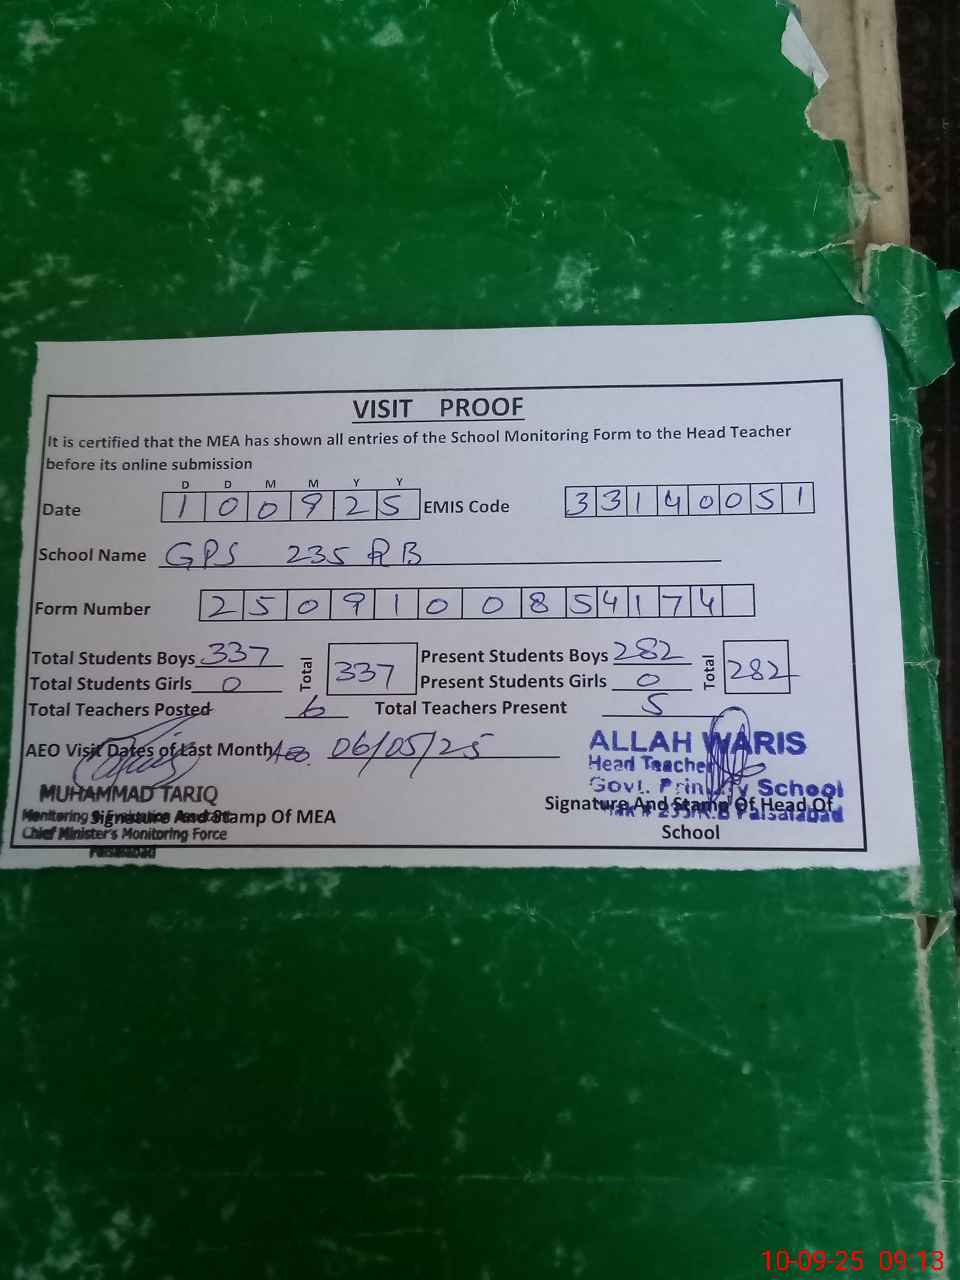 VISIT PROOF
It is certified that the MEA has shown all entries of the School Monitoring Form to the Head Teacher
before its online submission
D D M M Y Y
Date 1 0 0 9 2 5 EMIS Code 3 3 1 4 0 0 5 1
School Name GPS 235 RB
Form Number 2 5 0 9 1 0 0 8 5 4 1 7 4
Total Students Boys 337 Total 337 Present Students Boys 282 Total 282
Total Students Girls 0 Present Students Girls 0
Total Teachers Posted 6 Total Teachers Present 5
AEO Visit Dates of Last Month AEO. 06/05/25
ALLAH WARIS
Head Teacher
Govt. Primary School
235/R.B Faisalabad
MUHAMMAD TARIQ
Signature And Stamp Of MEA
Monitoring & Evaluation
Chief Minister's Monitoring Force
Faisalabad
Signature And Stamp Of Head Of
School
10-09-25 09:13